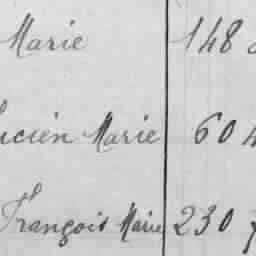 Marie 148
Lucien Marie 604
François Marie 230